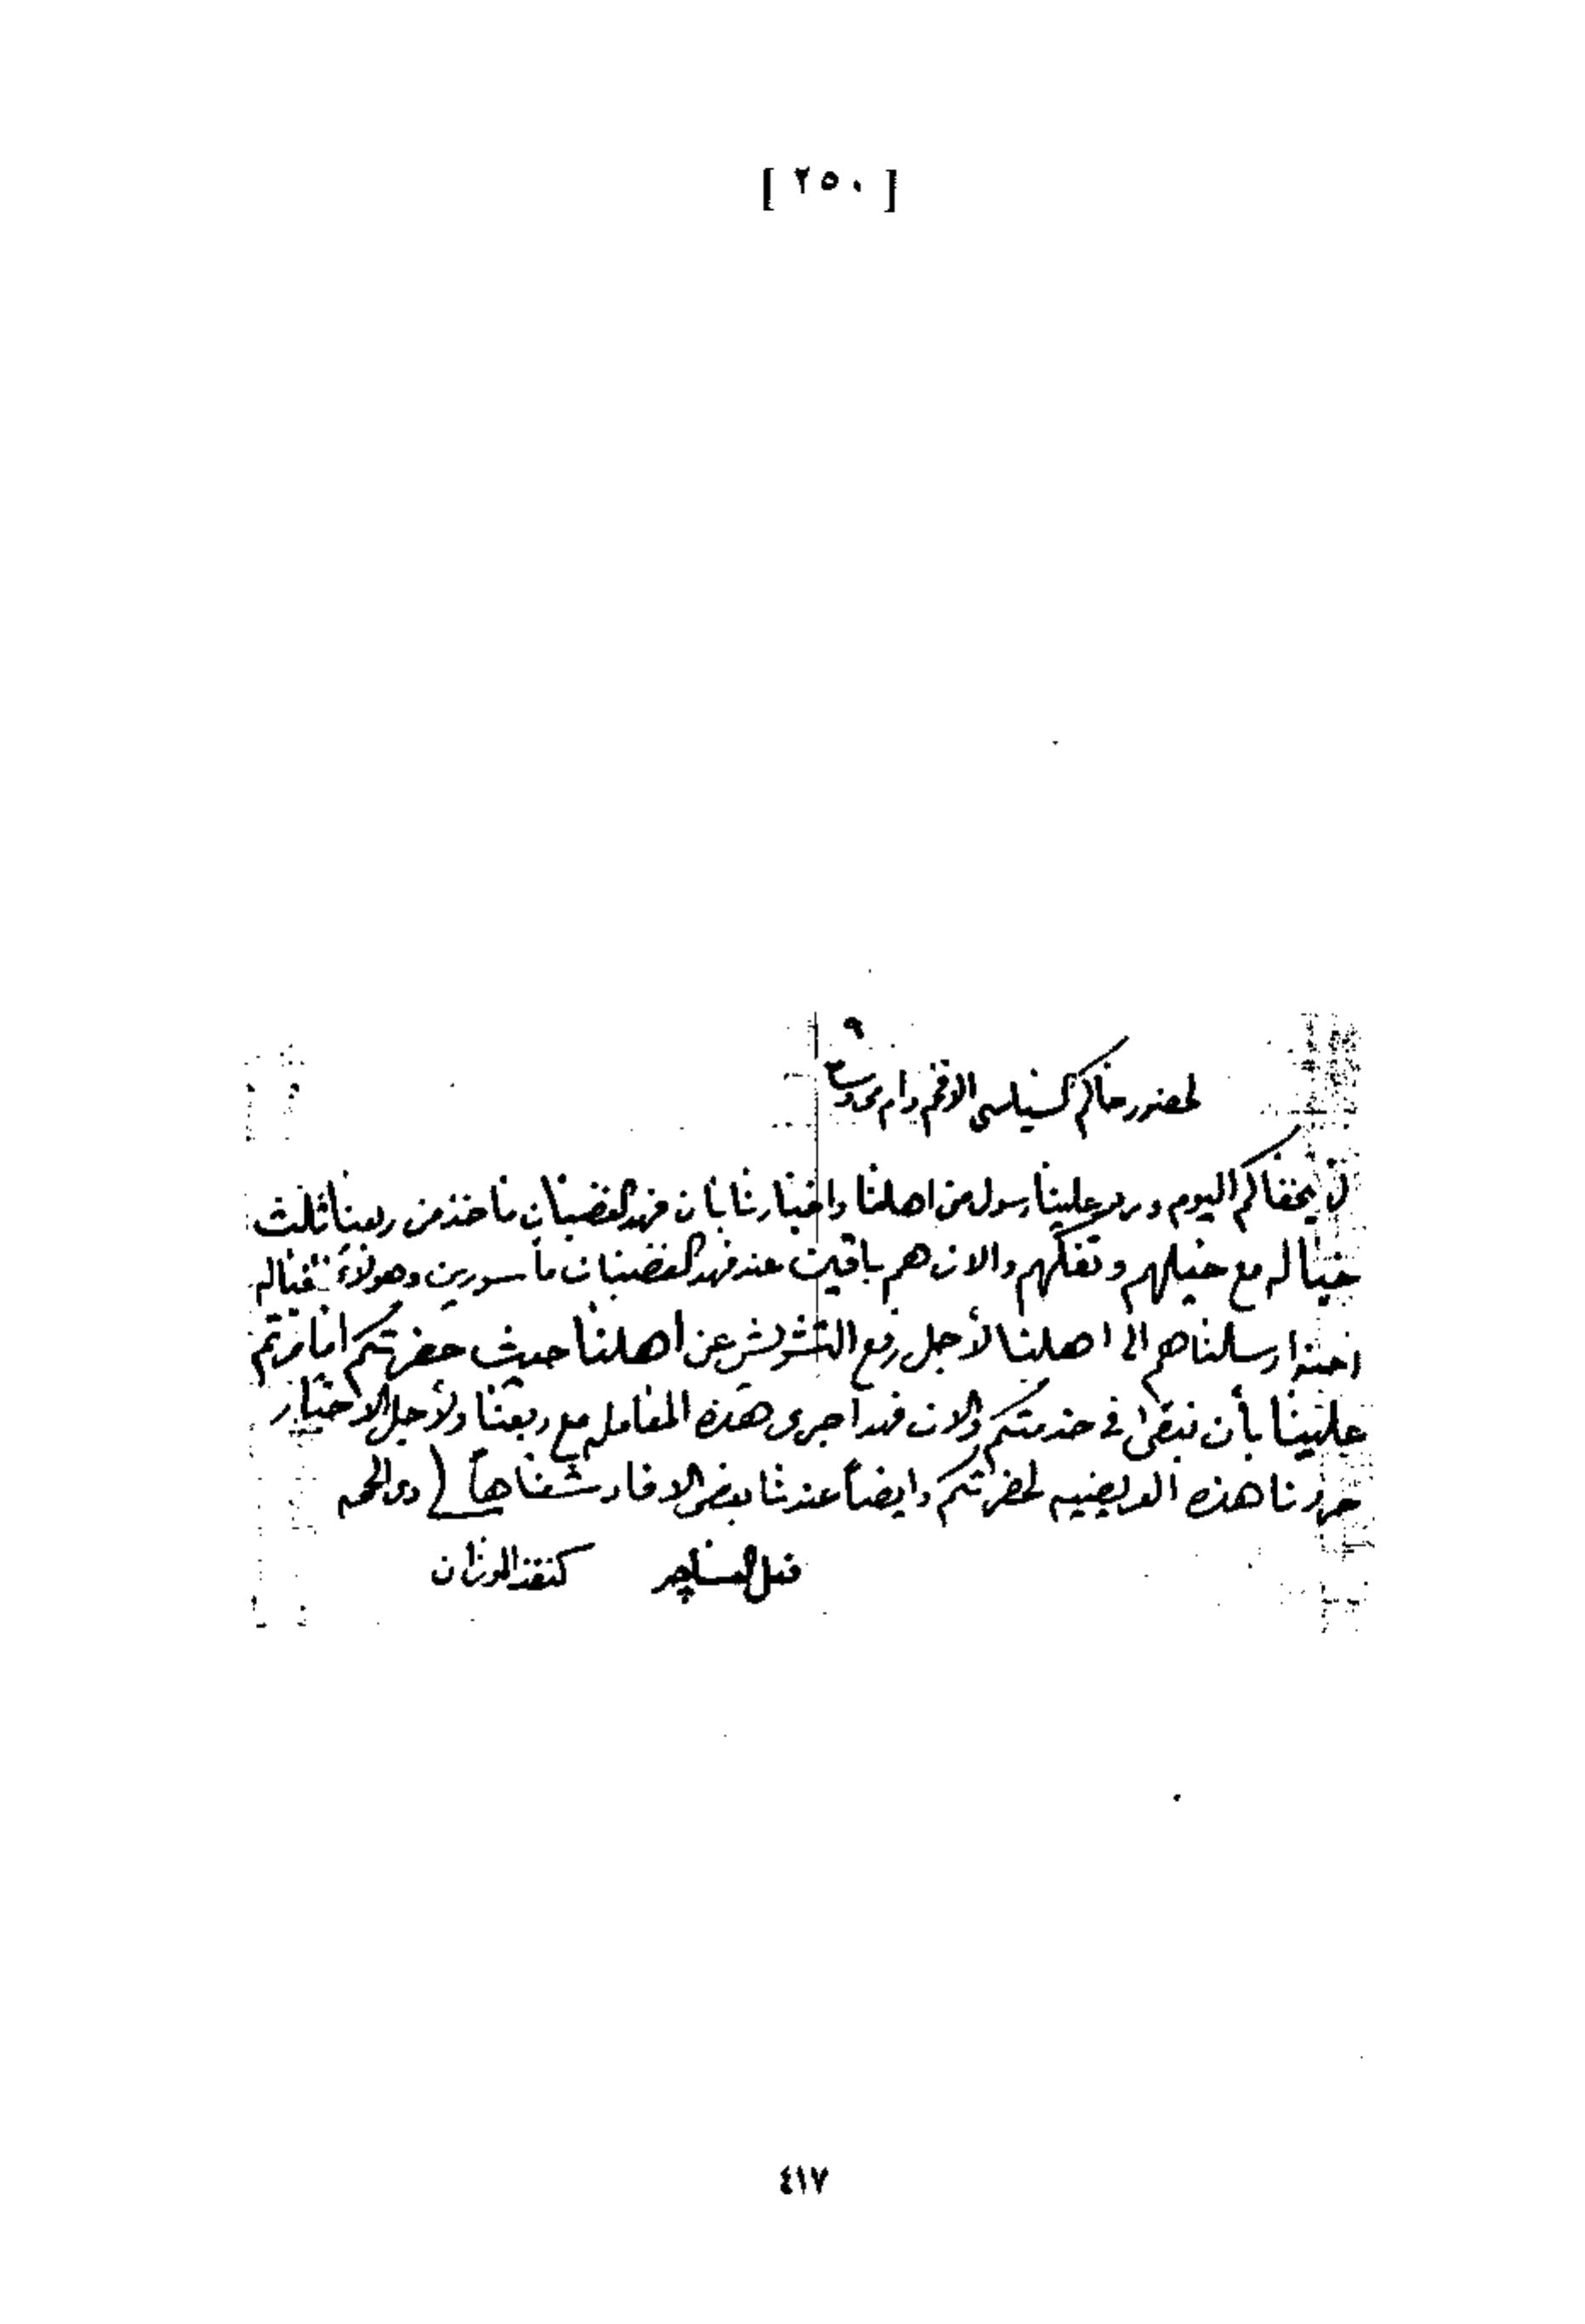 [ ٢٥٠ ]
٩
لحضور حاكم السياسي الافخم دام
لن يخفاكم اليوم ورد علينا رسول من اهلنا واخبارنا بان فهد الغضبان ماخذ من ربعنا ثلث
خياله مع خيلهم وتفكهم والان هم باقين عند فهد الغضبان مأسورين وهولاء الخياله
احنا ارسلناهم الى اهلنا لأجل رفع التشويش عن اهلنا حيث حضرتكم امرتم
علينا بأن نبقى في خدمتكم والان فهد اجرى هذه المعامله مع ربعنا ولأجل الاخبار
حررنا هذه العريضيه لحضرتكم وايضاً عندنا بعض الافاد شفاهاً
٤١٧